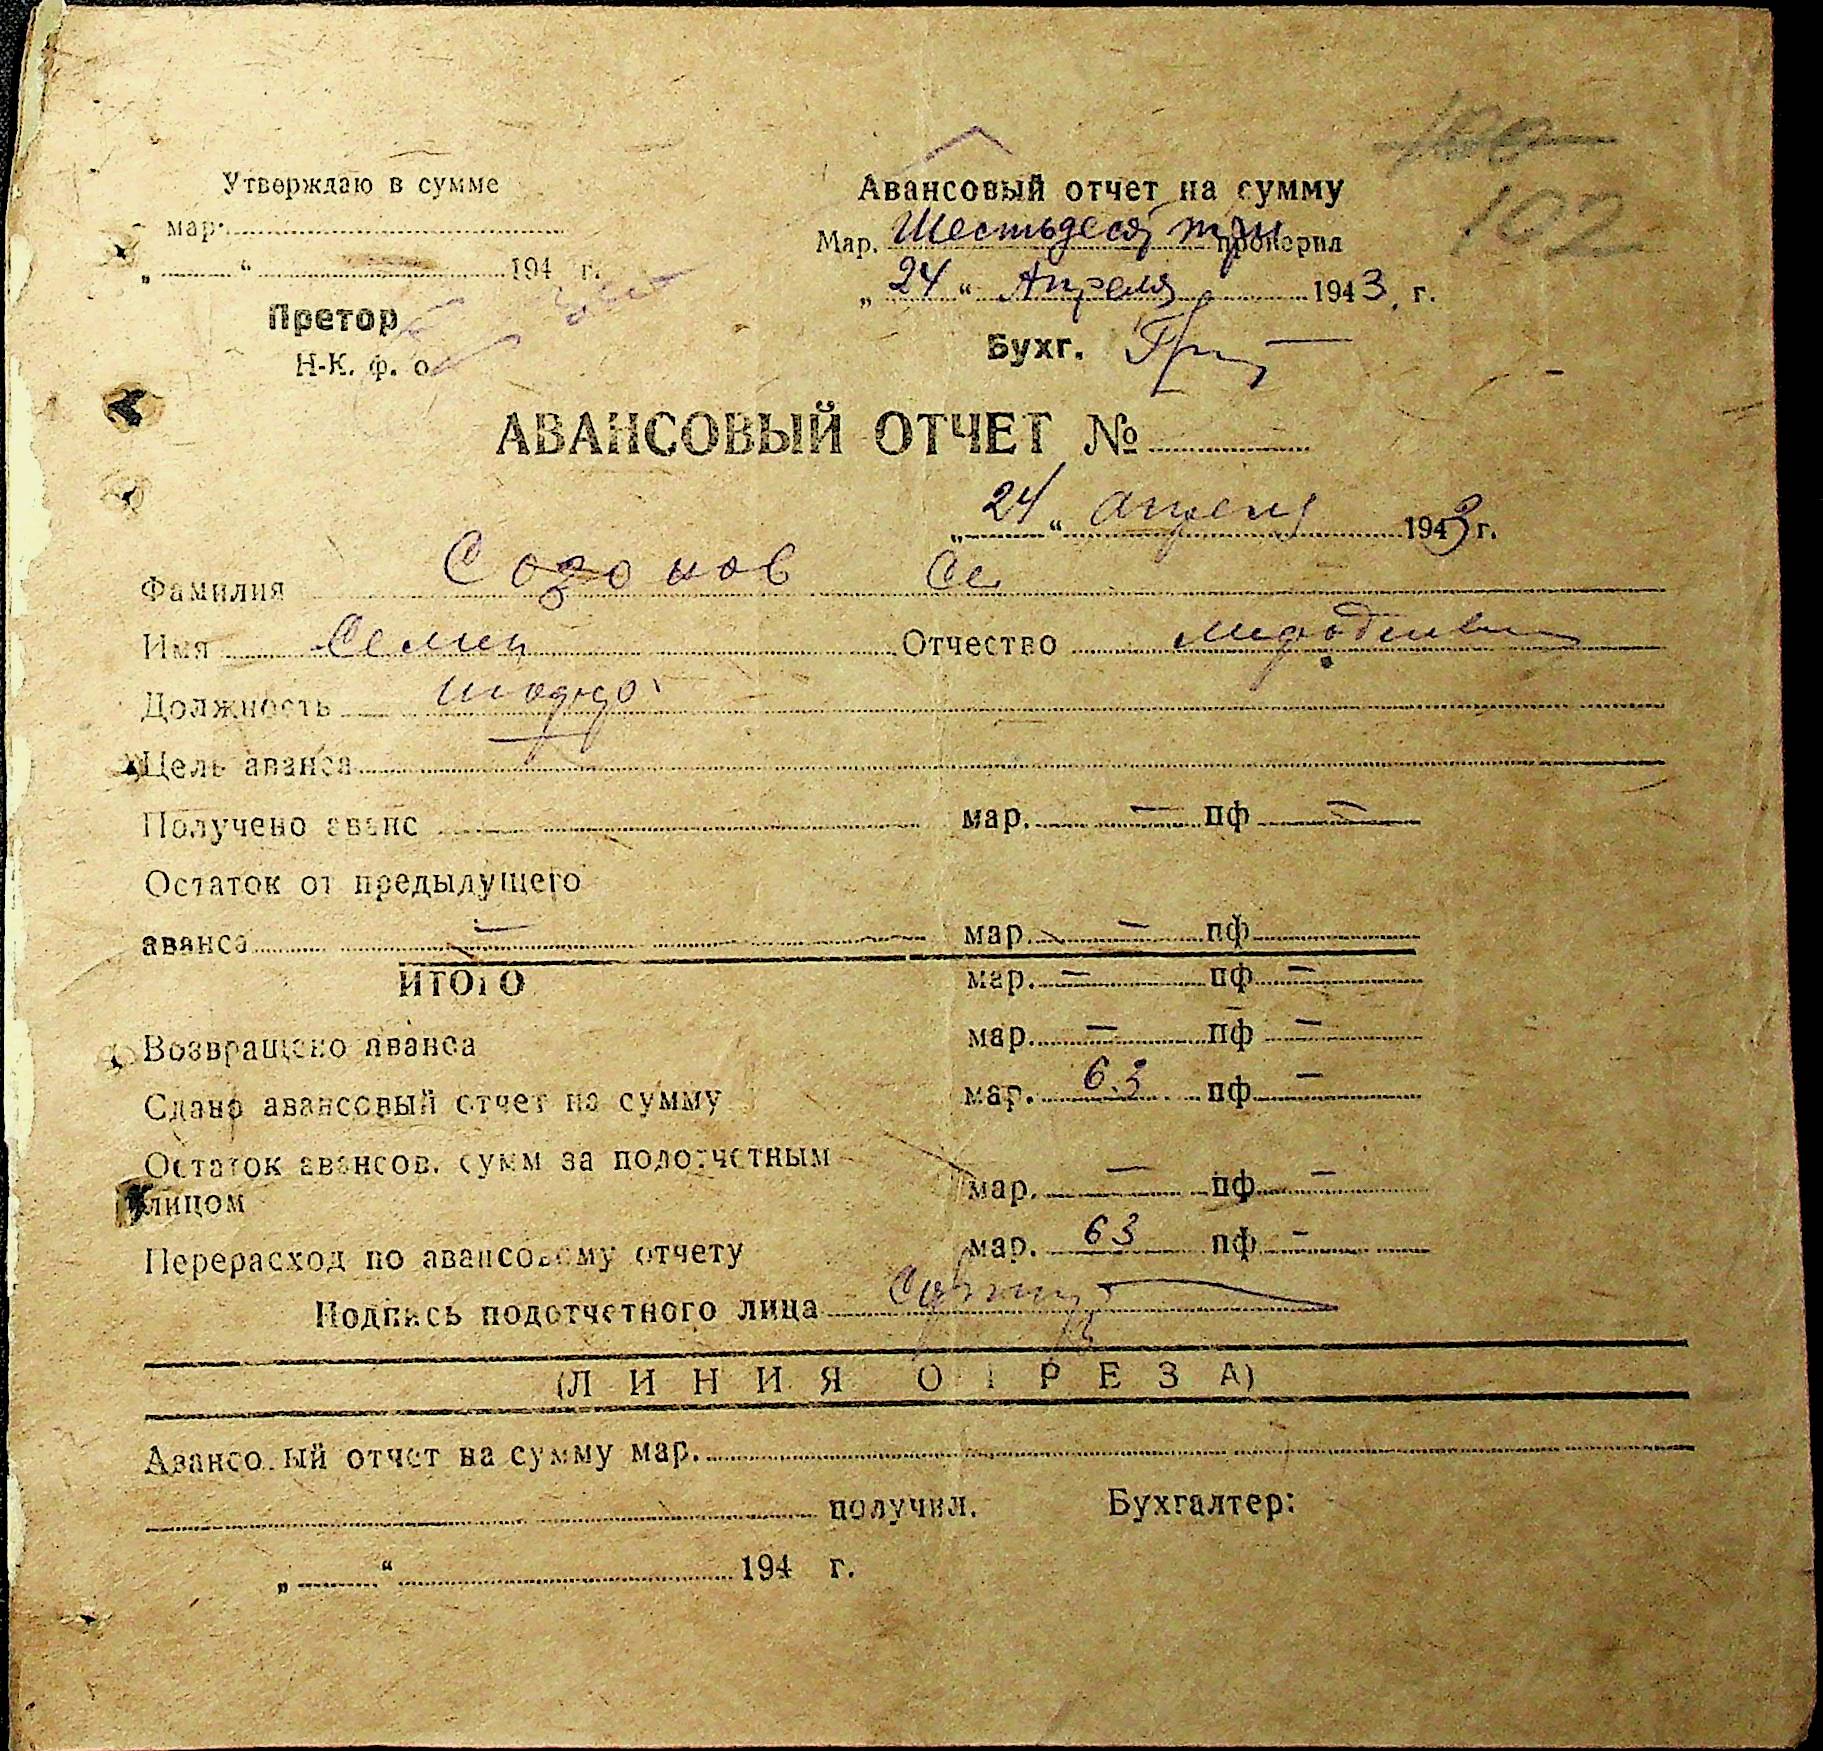 102
Утверждаю в сумме
мар.
„ “ 194 г.
Претор
Н-К. ф. о.
Авансовый отчет на сумму
Мар. Шестьдесят три проверил
„ 24 “ Апреля 1943 г.
Бухг.
АВАНСОВЫЙ ОТЧЕТ №
„ 24 “ апреля 1943 г.
Фамилия Созонов Се
Имя Семен Отчество
Должность шофер
Цель аванса
Получено аванс мар. — пф —
Остаток от предыдущего
аванса — мар. — пф
ИТОГО мар. — пф —
Возвращено аванса мар. — пф —
Сдано авансовый отчет на сумму мар. 63 пф —
Остаток авансов. сумм за подотчетным
лицом мар. — пф —
Перерасход по авансовому отчету мар. 63 пф —
Подпись подотчетного лица
(ЛИНИЯ ОТРЕЗА)
Авансовый отчет на сумму мар.
получил. Бухгалтер:
„ “ 194 г.